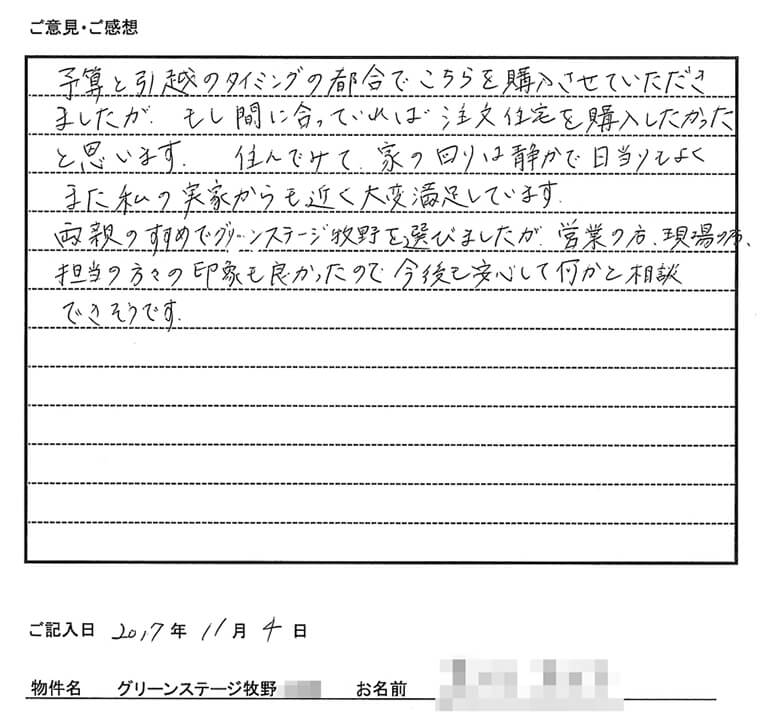 ご意見・ご感想
予算と引越のタイミングの都合でこちらを購入させていただき
ましたが、もし間に合っていれば注文住宅を購入したかった
と思います。 住んでみて、家の回りは静かで日当りもよく
また私の実家からも近く大変満足しています。
両親のすすめでグリーンステージ牧野を選びましたが、営業の方、現場の方、
担当の方々の印象も良かったので今後も安心して何かと相談
できそうです。
ご記入日 2017年 11月 4日
物件名 グリーンステージ牧野 お名前